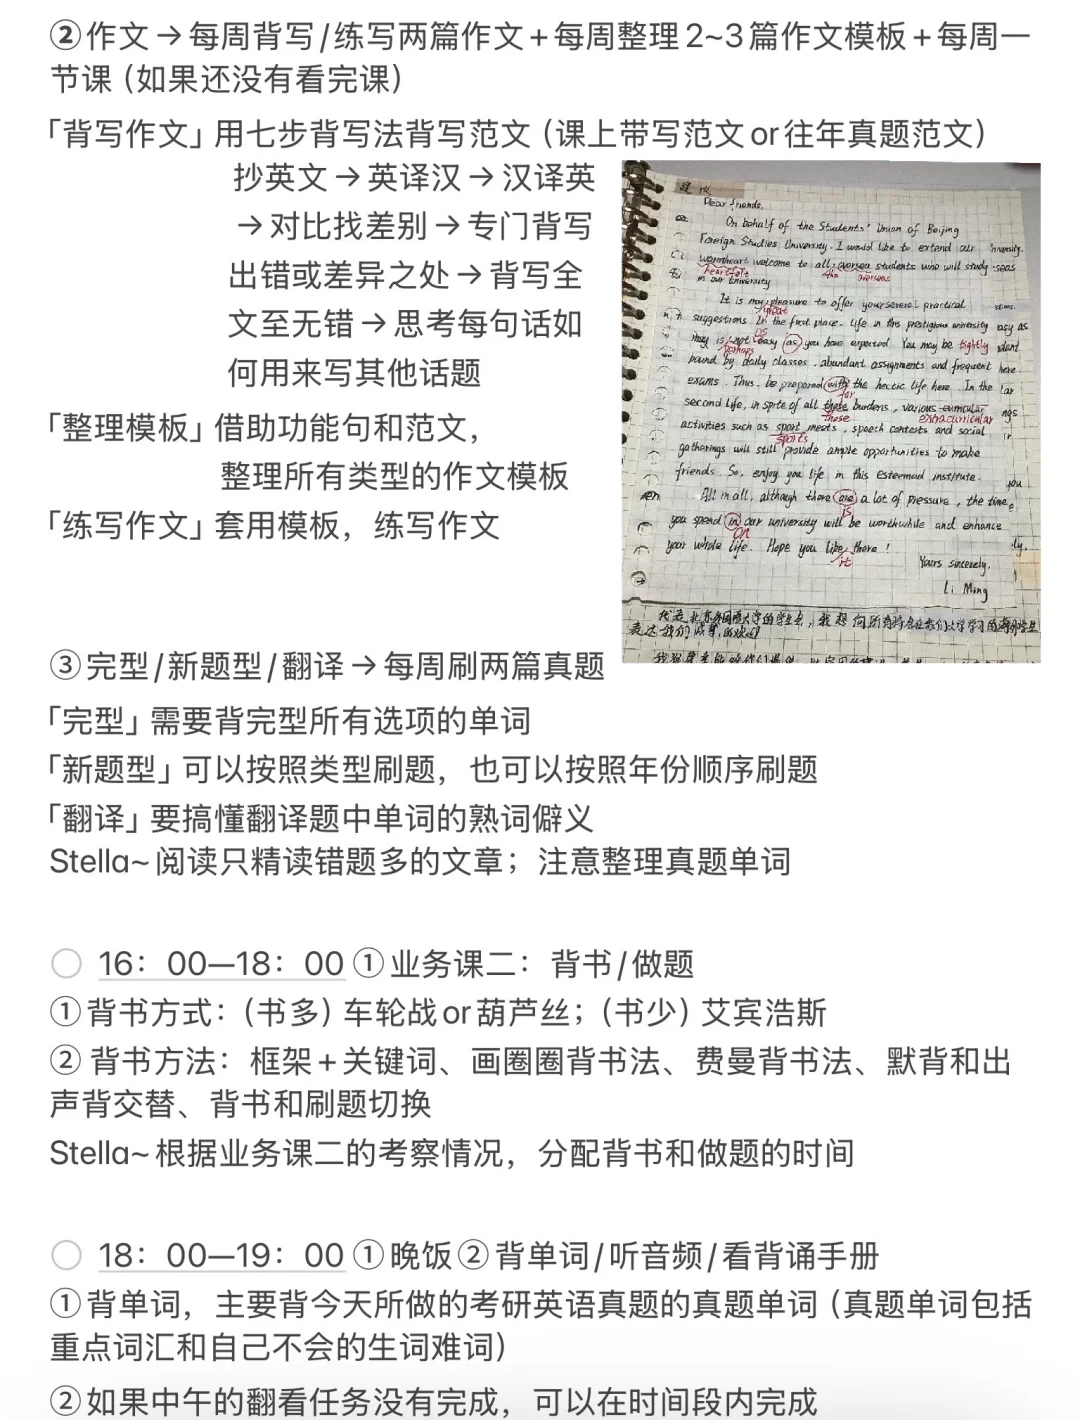 ②作文→每周背写/练写两篇作文+每周整理2~3篇作文模板+每周一
节课（如果还没有看完课）
「背写作文」用七步背写法背写范文（课上带写范文or往年真题范文）
抄英文→英译汉→汉译英
→对比找差别→专门背写
出错或差异之处→背写全
文至无错→思考每句话如
何用来写其他话题
「整理模板」借助功能句和范文，
整理所有类型的作文模板
「练写作文」套用模板，练写作文
建议
Dear friends,
On behalf of the Students' Union of Beijing
Foreign Studies University. I would like to extend our
warmheart welcome to all oversea students who will study
heartfelt
the
overseas
in our university
It is my pleasure to offer you several practical
great
suggestions. In the first place, life in this prestigious university
is
may is not easy (as) you have expected. You may be tightly
perhaps
bound by daily classes, abundant assignments and frequent
exams. Thus, be prepared (with) the hectic life here. In the
for
second life, in spite of all these burdens, various curricular
those
extracurricular
activities such as sport meets, speech contests and social
sports
gatherings will still provide ample opportunities to make
friends. So, enjoy you life in this esteemed institute.
All in all, although there (are) a lot of pressure, the time
is
you spend (in) our university will be worthwhile and enhance
on
your whole life. Hope you like there!
it
Yours sincerely,
Li Ming
③完型/新题型/翻译→每周刷两篇真题
「完型」需要背完型所有选项的单词
「新题型」可以按照类型刷题，也可以按照年份顺序刷题
「翻译」要搞懂翻译题中单词的熟词僻义
Stella~阅读只精读错题多的文章；注意整理真题单词
16：00—18：00①业务课二：背书/做题
①背书方式：（书多）车轮战or葫芦丝；（书少）艾宾浩斯
②背书方法：框架+关键词、画圈圈背书法、费曼背书法、默背和出
声背交替、背书和刷题切换
Stella~根据业务课二的考察情况，分配背书和做题的时间
18：00—19：00①晚饭②背单词/听音频/看背诵手册
①背单词，主要背今天所做的考研英语真题的真题单词（真题单词包括
重点词汇和自己不会的生词难词）
②如果中午的翻看任务没有完成，可以在时间段内完成